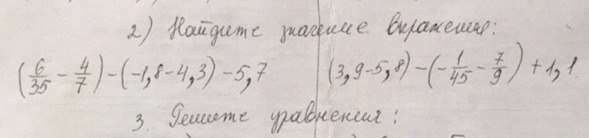 2) Найдите значение выражения:
(6/35 - 4/7) - (-1,8 - 4,3) - 5,7 (3,9 - 5,8) - (-1/45 - 7/9) + 1,1.
3. Решите уравнения: